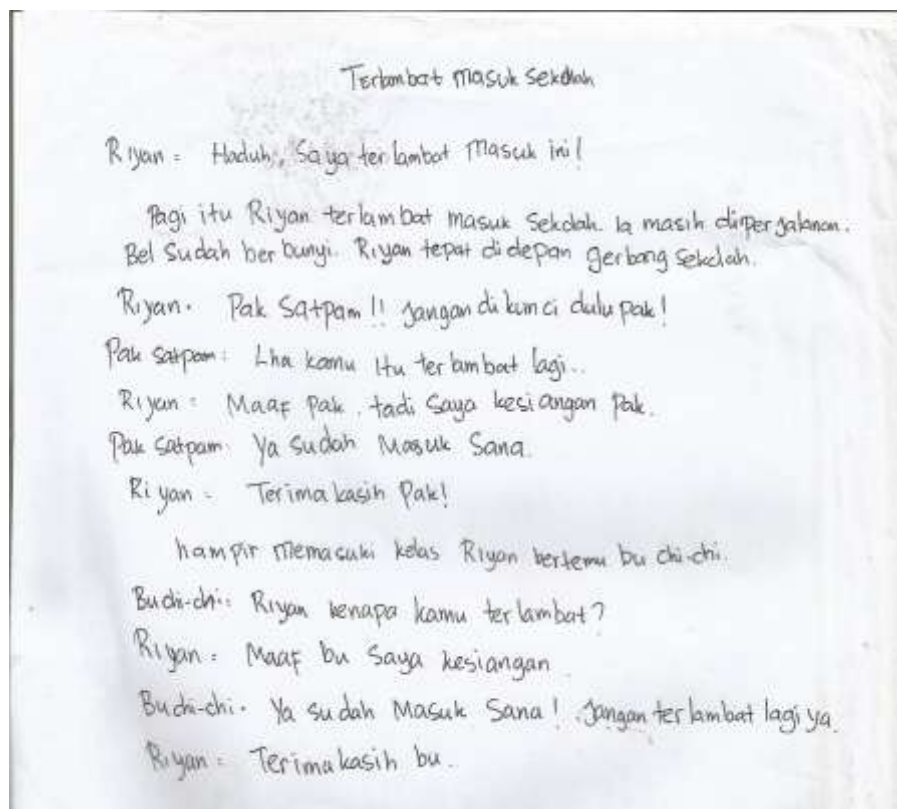 Terlambat masuk sekolah
Riyan = Haduh, Saya terlambat masuk ini!
Pagi itu Riyan terlambat masuk sekolah. Ia masih diperjalanan.
Bel sudah berbunyi. Riyan tepat didepan gerbang sekolah.
Riyan. Pak Satpam!! Jangan dikunci dulu pak!
Pak satpam: Lha kamu itu terlambat lagi..
Riyan: Maaf Pak. tadi saya kesiangan Pak.
Pak satpam: Ya sudah Masuk Sana.
Riyan = Terimakasih Pak!
hampir memasuki kelas Riyan bertemu bu chi-chi.
Bu chi-chi: Riyan kenapa kamu terlambat?
Riyan = Maaf bu saya kesiangan
Bu chi-chi. Ya sudah Masuk Sana! Jangan terlambat lagi ya.
Riyan = Terimakasih bu.